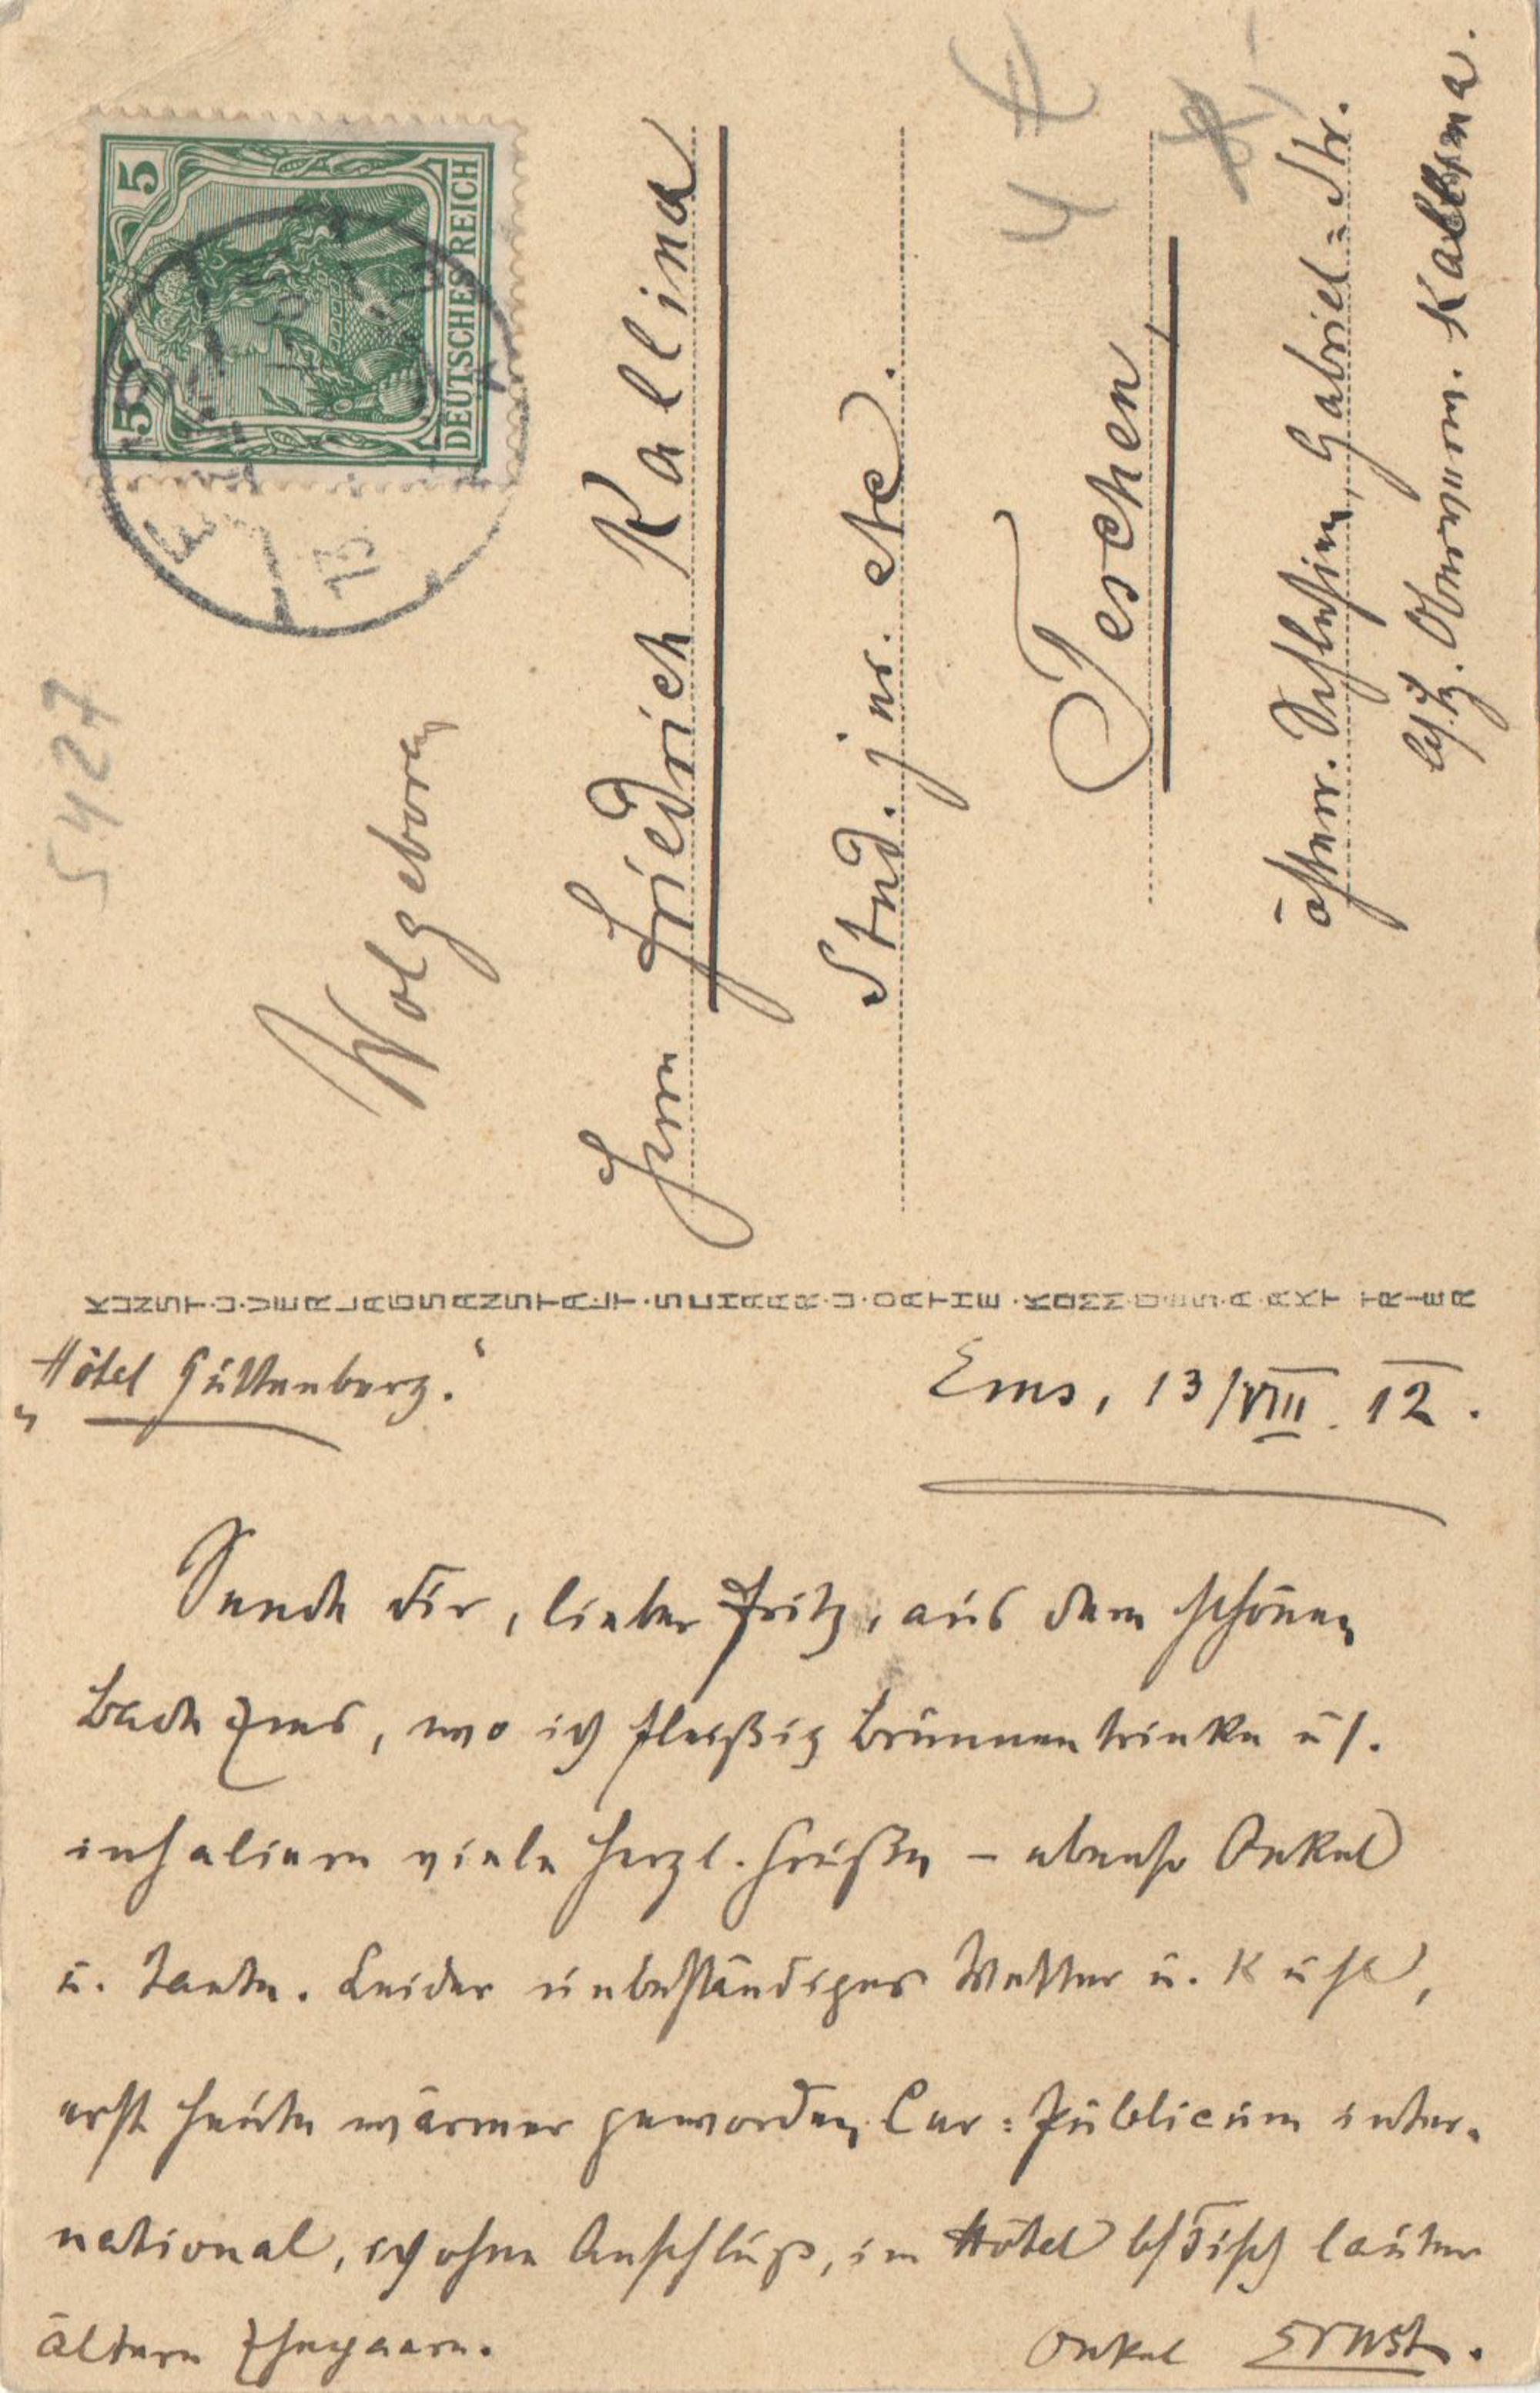 5427
5 5
DEUTSCHES REICH
13.
Wolgeboren
Herrn Friedrich Kallina
Stud. jur. etc.
4
Teschen,
österr. Schlesien, Gabriel=Str.
bei Fr. Oberverw. Kallina.
KUNST- U. VERLAGSANSTALT SCHAAR U. DATHE KOMM.-GES. A. AKT. TRIER
„Hôtel Güttenberg.“
Ems, 13/VIII. 12.
Sende Dir, lieber Fritz, aus dem schönen
Bade Ems, wo ich fleißig Brunnen trinke u.
inhaliere viele herzl. Grüße – ebenso Onkel
u. Tante. Leider unbeständiges Wetter u. Kühl,
erst heute wärmer geworden. Cur=Publicum inter-
national, ich ohne Anschluß, im Hôtel b/Tisch lauter
ältere Ehepaare.
Onkel Ernst.